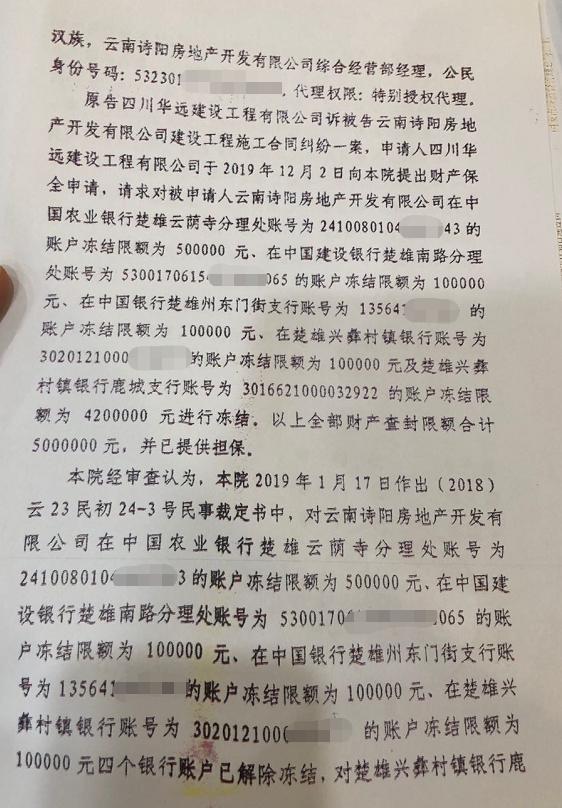 汉族，云南诗阳房地产开发有限公司综合经营部经理，公民
身份号码：532301，代理权限：特别授权代理。
原告四川华远建设工程有限公司诉被告云南诗阳房地
产开发有限公司建设工程施工合同纠纷一案，申请人四川华
远建设工程有限公司于 2019 年 12 月 2 日向本院提出财产保
全申请，请求对被申请人云南诗阳房地产开发有限公司在中
国农业银行楚雄云荫寺分理处账号为 2410080104 43 的
账户冻结限额为 500000 元、在中国建设银行楚雄南路分理
处账号为 5300170615 065 的账户冻结限额为 100000
元、在中国银行楚雄州东门街支行账号为 13564 的
账户冻结限额为 100000 元、在楚雄兴彝村镇银行账号为
3020121000 的账户冻结限额为 100000 元及楚雄兴彝
村镇银行鹿城支行账号为 3016621000032922 的账户冻结限
额为 4200000 元进行冻结。以上全部财产查封限额合计
5000000 元，并已提供担保。
本院经审查认为，本院 2019 年 1 月 17 日作出（2018）
云 23 民初 24-3 号民事裁定书中，对云南诗阳房地产开发有
限公司在中国农业银行楚雄云荫寺分理处账号为
2410080104 3 的账户冻结限额为 500000 元、在中国建
设银行楚雄南路分理处账号为 5300170 065 的账
户冻结限额为 100000 元、在中国银行楚雄州东门街支行账
号为 135641 的账户冻结限额为 100000 元、在楚雄兴
彝村镇银行账号为 302012100 的账户冻结限额为
100000 元四个银行账户已解除冻结，对楚雄兴彝村镇银行鹿